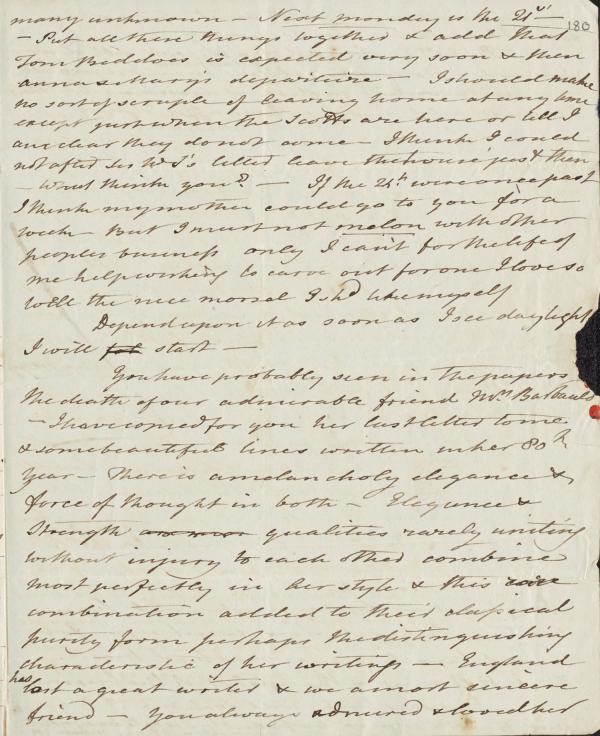 many unknown – Next monday is the 21st 180
– Put all these things together & add that
Tom Beddoes is expected very soon & then
anna & Mary's departure – I should make
no sort of scruple of leaving home at any time
except just when the Scotts are here or till I
am clear they do not come – I think I could
not after Sir W S's letter leave the house just then
– What think you? – If the 24th were once past
I think my mother could go to you for a
week – But I must not melon with other
peoples business only I can't for the life of
me help wishing to carve out for one I love so
well the nice morsel I shd like myself
Depend upon it as soon as I see daylight
I will start –
You have probably seen in the papers
the death of our admirable friend Mrs Barbauld
– I have copied for you her last letter to me
& some beautiful lines written in her 80th
year – There is a melancholy elegance &
force of thought in both – Elegance &
Strength qualities rarely uniting
without injury to each other combine
most perfectly in her style & this rare
combination added to their classical
purity form perhaps the distinguishing
characteristic of her writings – England
has lost a great writer & we a most sincere
friend – You always admired & loved her